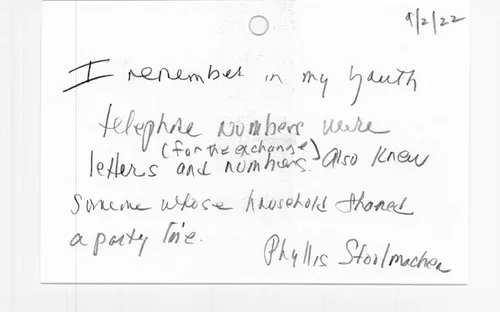 9/2/22
I remember in my youth
telephone numbers were
(for the exchange)
letters and numbers. Also knew
someone whose household shared
a party line.
Phyllis